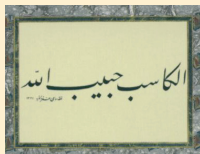 الکاسب حبیب الله